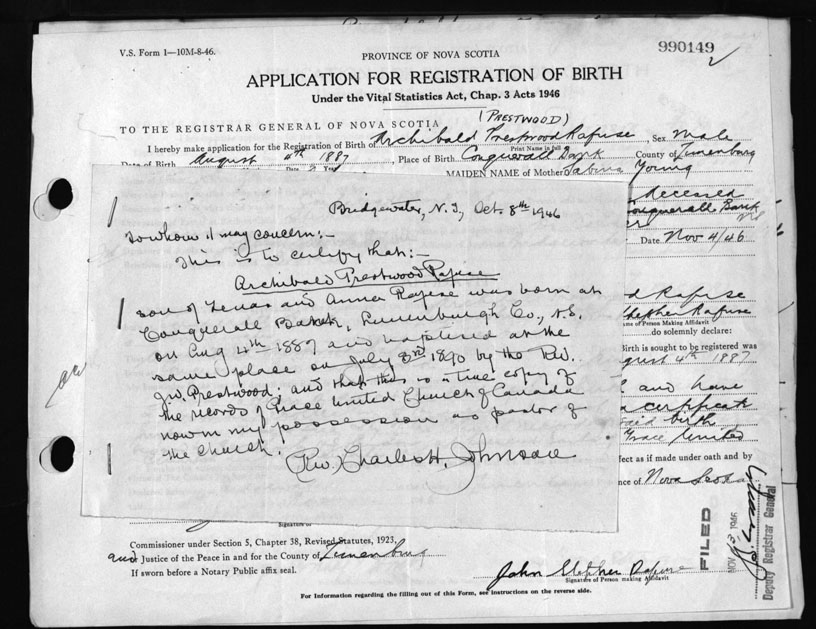 V.S. Form 1—10M-8-46.
990149
PROVINCE OF NOVA SCOTIA
APPLICATION FOR REGISTRATION OF BIRTH
Under the Vital Statistics Act, Chap. 3 Acts 1946
(PRESTWOOD)
TO THE REGISTRAR GENERAL OF NOVA SCOTIA
I hereby make application for the Registration of Birth of Archibald Prestwood Rafuse, Sex Male
Print Name in full
Date of Birth August 4th 1887, Place of Birth Conquerall Bank County of Lunenburg
MAIDEN NAME of Mother Sabina Young
deceased
Conquerall Bank
Date Nov 4/46
Bridgewater, N.S, Oct. 8th 1946
To whom it may concern:-
This is to certify that:-
Archibald Prestwood Rafuse
son of Zenas and Anna Rafuse was born at
Conquerall Bank, Lunenburgh Co., N.S.
on Aug 4th 1887 and baptized at the
same place on July 3rd 1890 by the Rev.
J.W. Prestwood; and that this is a true copy of
the records of Grace United Church of Canada
now in my possession as pastor of
the church.
Rev. Charles H. Johnson
Rafuse
Stephen Rafuse
me of Person Making Affidavit
do solemnly declare:
Birth is sought to be registered was
August 4th 1887
and have
a certificate
birth
Grace United
fect as if made under oath and by
nce of Nova Scotia
Signature of
Commissioner under Section 5, Chapter 38, Revised Statutes, 1923,
and Justice of the Peace in and for the County of Lunenburg
If sworn before a Notary Public affix seal.
John Stephen Rafuse
Signature of Person making Affidavit
For Information regarding the filling out of this Form, see instructions on the reverse side.
FILED
NOV 13 1946
Deputy Registrar General